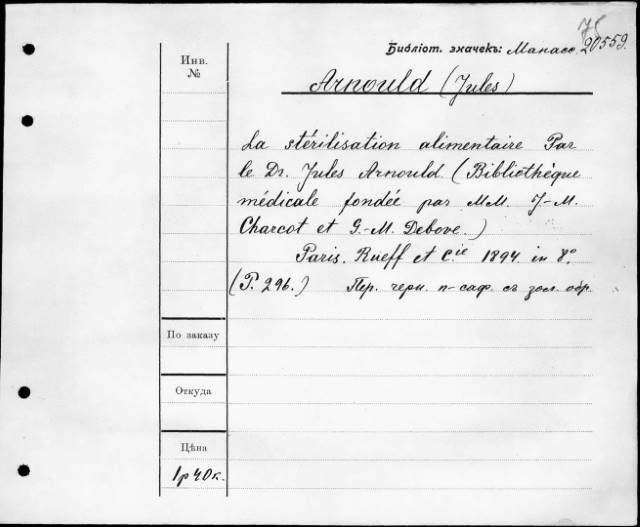 75
Библіот. значекъ: Манасс. 20559.
Инв.
№
Arnould (Jules)
La stérilisation alimentaire Par
le Dr. Jules Arnould (Bibliothèque
médicale fondée par MM. J.-M.
Charcot et G.-M. Debove.)
Paris. Rueff et Cie 1894. in 8º
(P. 296.) Пер. черн. п-саф. съ зол. обр.
По заказу
Откуда
Цѣна
1р 40к.